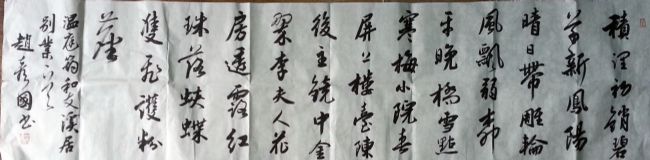 積潤初銷碧
草新鳳陽
晴日帶雕輪
風飄弱柳
平晚橋雪點
寒梅小院春
屏上樓臺陳
後主鏡中金
翠李夫人花
房透露紅
珠落蛺蝶
雙飛護粉
塵
溫庭筠和友溪居
別業
趙彥國書